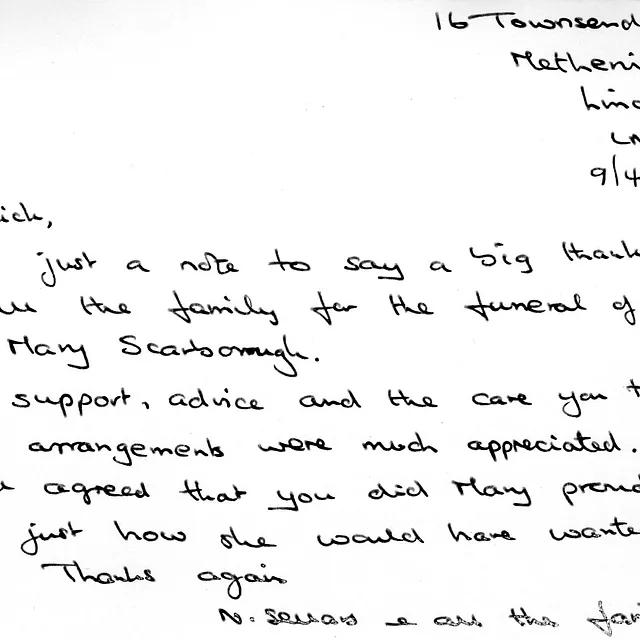 16 Townsend
Metheri
Linc
LN
9/4
ick,
just a note to say a big thank
the family for the funeral of
Mary Scarborough.
support, advice and the care you t
arrangements were much appreciated.
agreed that you did Mary proud
just how she would have wante
Thanks again
N. & all the fam